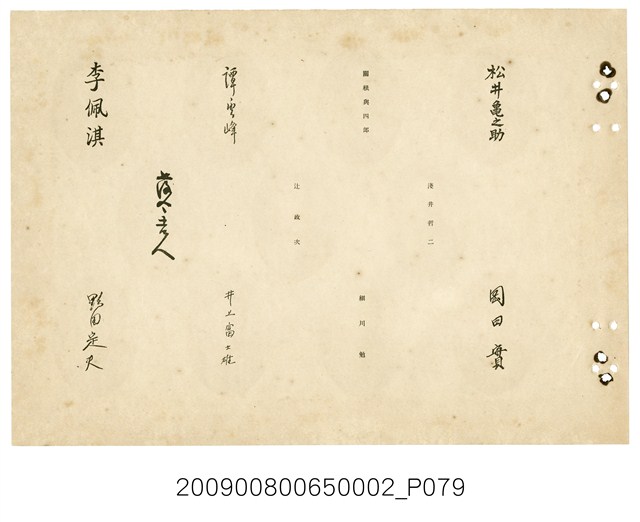 松井亀之助
岡田實
淺井利二
關根與四郎
細川勉
辻政次
譚雲峰
井上富士雄
野田定久
李佩淇
200900800650002_P079